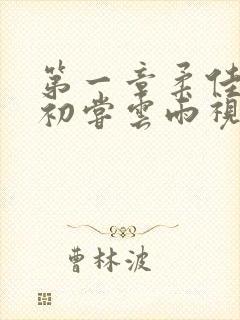 第一章柔佳
初尝雲雨視
曹林波